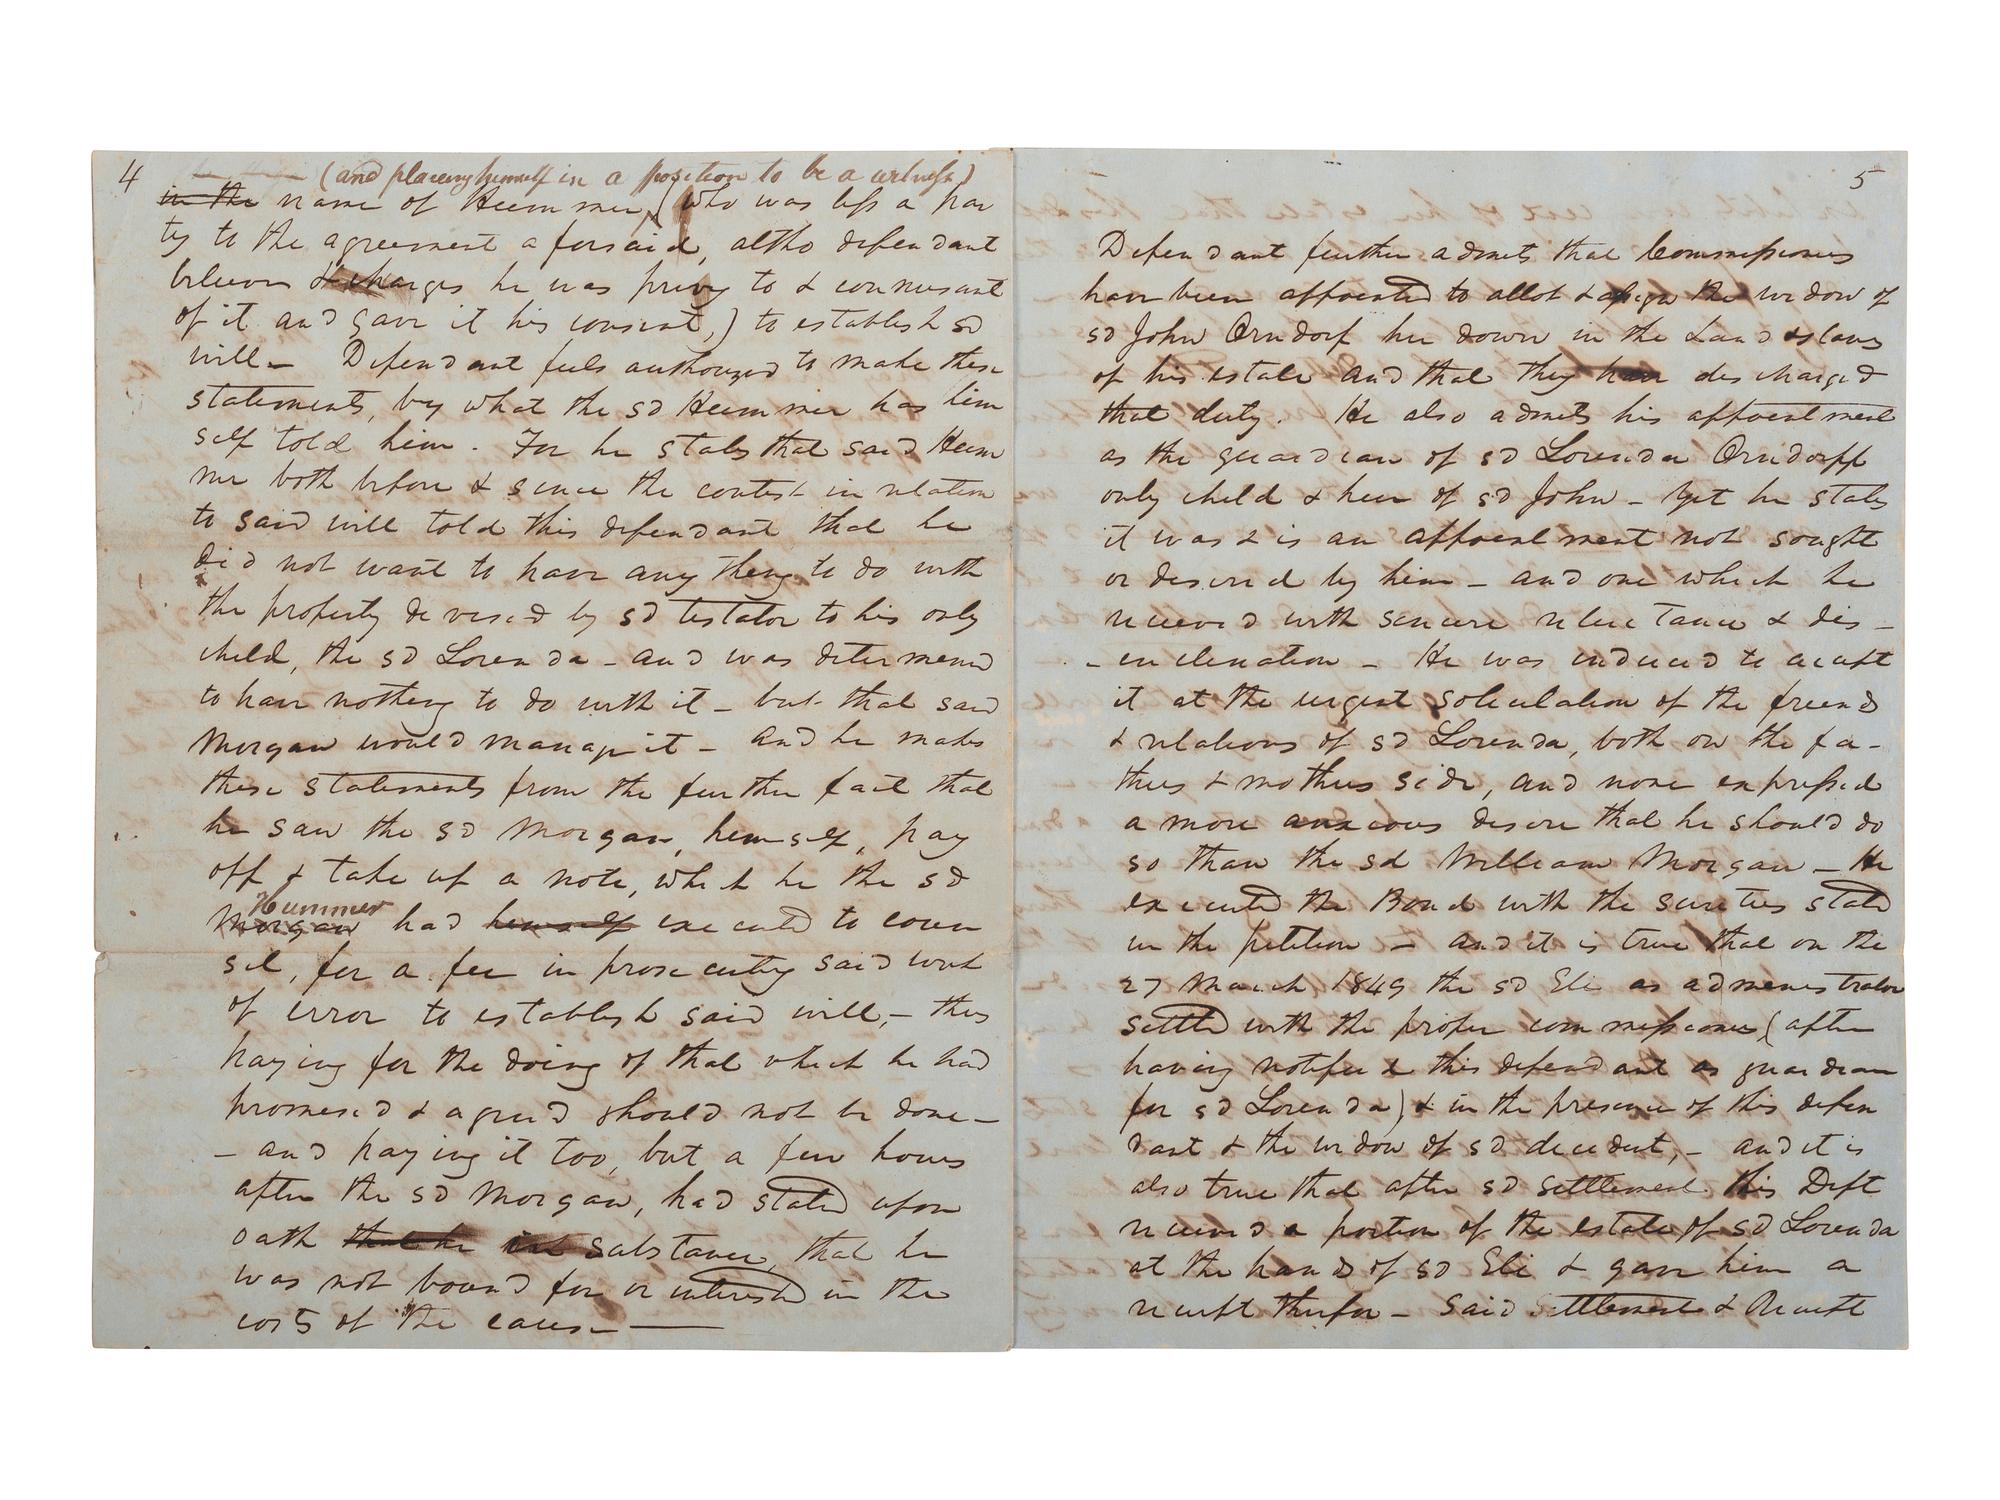 4
(and placing himself in a position to be a witness)
in the name of Hummer, (who was less a par
ty to the agreement aforsaid, altho defendant
believes & charges he was privy to & connusant
of it and gave it his consent,) to establish sd
will— Defendant feels authorized to make these
statements, by what the sd Hummer has him
self told him. For he states that said Hum
mer both before & since the contest in relation
to said will told this defendant that he
did not want to have any thing to do with
the property devised by sd testator to his only
child, the sd Lorenda – and was determined
to have nothing to do with it – but that said
Morgan would manage it – And he makes
these statements from the further fact that
he saw the sd Morgan, himself, pay
off & take up a note, which he the sd
Hummer
Morgan had himself executed to coun
sel, for a fee in prosecuting said writ
of error to establish said will, – thus
paying for the doing of that which he had
promised & agreed should not be done –
– and paying it too, but a few hours
after the sd Morgan, had stated upon
oath that he in substance, that he
was not bound for or interested in the
costs of the cause ——
5
Defendant further admits that Commissioners
have been appointed to allot & assign the widow of
sd John Orndorf her dower in the Land & slaves
of his estate and that they have discharged
that duty. He also admits his appointment
as the guardian of sd Lorenda Orndorff
only child & heir of sd John – Yet he states
it was & is an appointment not sought
or desired by him – and one which he
received with sincere reluctance & dis –
– inclination – He was induced to accept
it at the urgent solicitation of the friends
& relations of sd Lorenda, both on the fa –
thers & mothers side, and none expressed
a more anxious desire that he should do
so than the sd William Morgan – He
executed the Bond with the sureties stated
in the petition – and it is true that on the
27 March 1849 the sd Eli as administrator
settled with the proper commissioner (after
having notified this defendant as guardian
for sd Lorenda) & in the presence of this defen
dant & the widow of sd decedent, – and it is
also true that after sd settlement this Deft
received a portion of the estate of sd Lorenda
at the hands of sd Eli & gave him a
receipt therefor – Said Settlement & Receipt